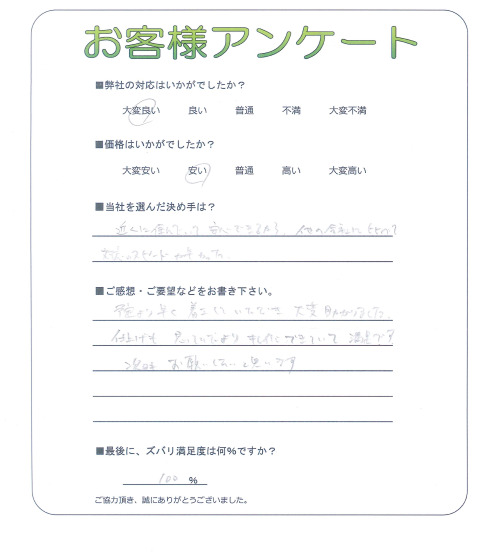 お客様アンケート
■弊社の対応はいかがでしたか？
大変良い 良い 普通 不満 大変不満
■価格はいかがでしたか？
大変安い 安い 普通 高い 大変高い
■当社を選んだ決め手は？
近くに住んでいて 安心できるから、他の会社に比べて
対応のスピードが
■ご感想・ご要望などをお書き下さい。
早く着工していただき 大変助かりました。
仕上げも 思っていたより キレイにできていて 満足です
次回も お願いしたいと思います
■最後に、ズバリ満足度は何%ですか？
100 %
ご協力頂き、誠にありがとうございました。